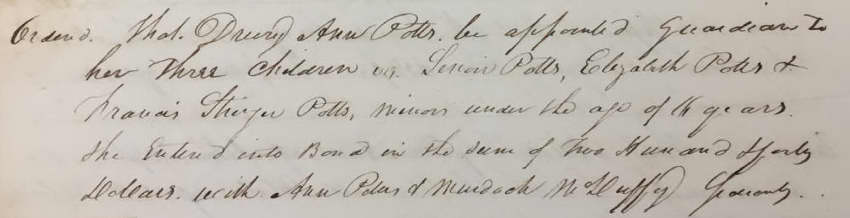 Orderd. That. Drury Ann Potts. be appointed Guardian to
her Three Children viz. Potts, Elizabeth Potts &
Francis Potts, minors under the age of years.
She Entered into Bond in the sum of Two Hun and forty
Dollars. with Ann Potts & Murdoch McDuffy